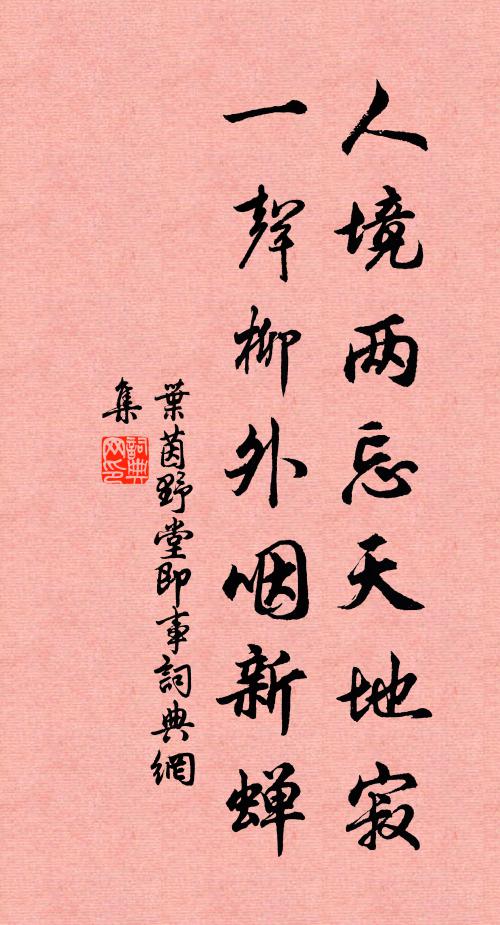 人境两忘天地寂
一聲柳外咽新蝉
葉茵野堂即事詞典網
集
詞典
网印